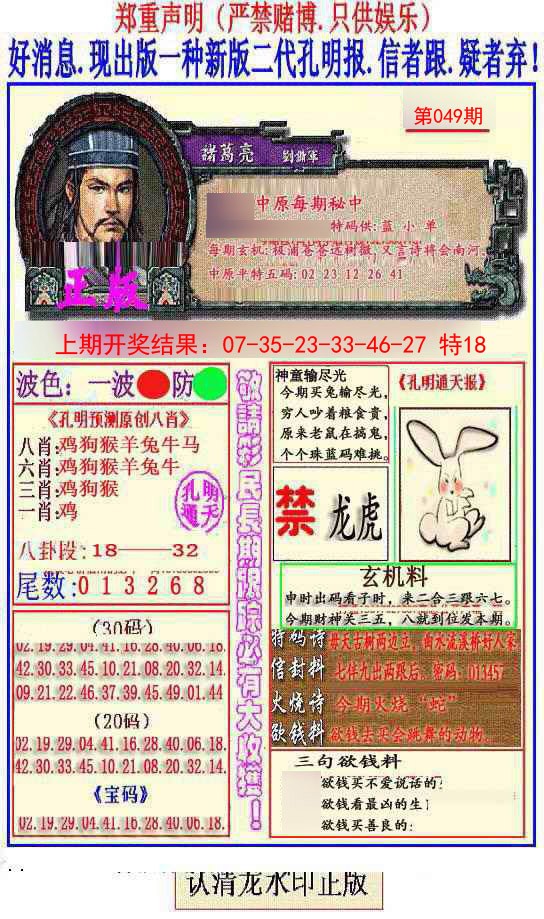 郑重声明（严禁赌博.只供娱乐）
好消息.现出版一种新版二代孔明报.信者跟.疑者弃！
第049期
諸葛亮 劉備軍
中原每期秘中
特码供:蓝 小 单
每期玄机:极浦苍苍远树微,又言诗将会南河
中原平特五码: 02 23 12 26 41
正版
上期开奖结果：07-35-23-33-46-27 特18
波色：一波 防
《孔明预测原创八肖》
八肖:鸡狗猴羊兔牛马
六肖:鸡狗猴羊兔牛
三肖:鸡狗猴
一肖:鸡
孔明
通天
八卦段:18——32
尾数:013268
(30码)
02.19.29.04.41.16.28.40.06.18.
42.30.33.45.10.21.08.20.32.14.
09.21.22.46.37.39.45.49.01.44
(20码)
02.19.29.04.41.16.28.40.06.18.
42.30.33.45.10.21.08.20.32.14.
《宝码》
02.19.29.04.41.16.28.40.06.18.
敬請彩民長期跟踪必有大收獲！
神童输尽光
今期买兔输尽光,
穷人吵着粮食贵,
原来老鼠在搞鬼,
个个珠蓝码难挑。
《孔明通天报》
禁 龙虎
玄机料
申时出码看子时，来二合三跟六七。
今期财神笑三五，八就到位发本期。
特码诗 古树两边立，曲水流溪桥好人家
信封料 七伴九出两跟后。密码：013457
火烧诗 今期火烧“蛇”
欲钱料 欲钱去买会跳舞的动物。
三句欲钱料
欲钱买不爱说话的:
欲钱看最凶的生
欲钱买善良的:
认清龙水印正版